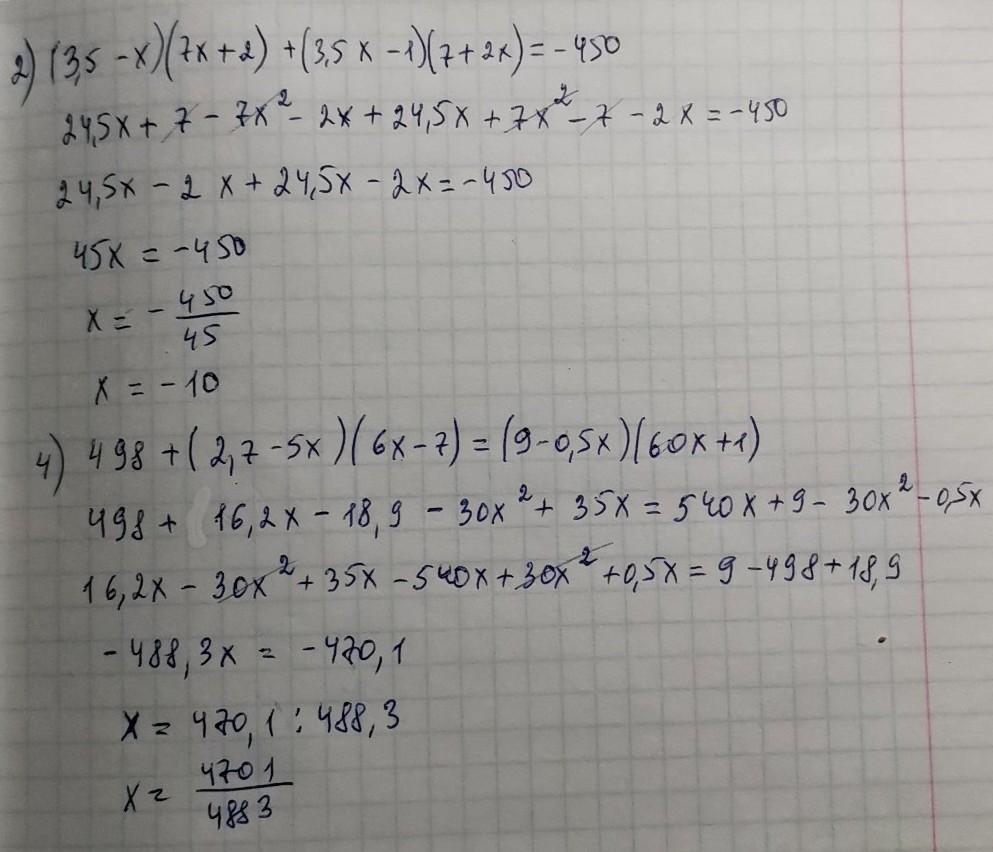 2) (3,5 - x)(7x + 2) + (3,5x - 1)(7 + 2x) = - 450
24,5x + 7 - 7x² - 2x + 24,5x + 7x² - 7 - 2x = - 450
24,5x - 2x + 24,5x - 2x = - 450
45x = - 450
x = - 450/45
x = - 10
4) 498 + (2,7 - 5x)(6x - 7) = (9 - 0,5x)(60x + 1)
498 + 16,2x - 18,9 - 30x² + 35x = 540x + 9 - 30x² - 0,5x
16,2x - 30x² + 35x - 540x + 30x² + 0,5x = 9 - 498 + 18,9
- 488,3x = - 470,1
x = 470,1 : 488,3
x = 4701/4883